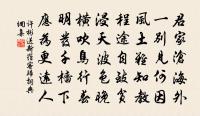 君家滄海外
一別見何因
風土雖知教
程途自致貧
浸天波色晚
橫吹鳥行春
明發千檣下
應無更遠人
許彬送新羅客歸詞典
網集